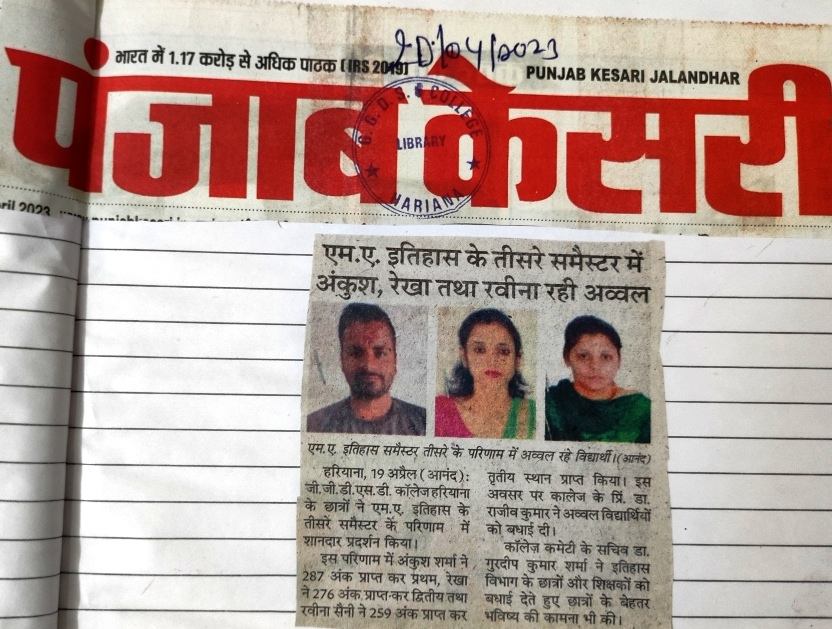 भारत में 1.17 करोड़ से अधिक पाठक (IRS 2019)
20/04/2023
PUNJAB KESARI JALANDHAR
पंजाब केसरी
G.G.D.S.D. COLLEGE
LIBRARY
HARIANA
ril 2023
एम.ए. इतिहास के तीसरे समैस्टर में
अंकुश, रेखा तथा रवीना रही अव्वल
एम.ए. इतिहास समैस्टर तीसरे के परिणाम में अव्वल रहे विद्यार्थी। (आनंद)
हरियाना, 19 अप्रैल (आनंद):
जी.जी.डी.एस.डी. कॉलेज हरियाना
के छात्रों ने एम.ए. इतिहास के
तीसरे समैस्टर के परिणाम में
शानदार प्रदर्शन किया।
इस परिणाम में अंकुश शर्मा ने
287 अंक प्राप्त कर प्रथम, रेखा
ने 276 अंक प्राप्त कर द्वितीय तथा
रवीना सैनी ने 259 अंक प्राप्त कर
तृतीय स्थान प्राप्त किया। इस
अवसर पर कालेज के प्रिं. डा.
राजीव कुमार ने अव्वल विद्यार्थियों
को बधाई दी।
कॉलेज कमेटी के सचिव डा.
गुरदीप कुमार शर्मा ने इतिहास
विभाग के छात्रों और शिक्षकों को
बधाई देते हुए छात्रों के बेहतर
भविष्य की कामना भी की।